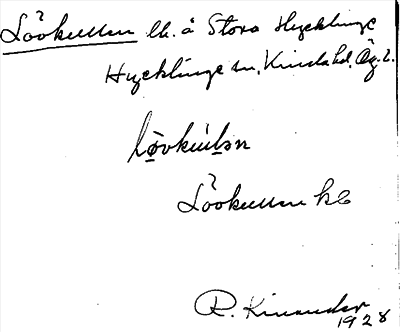 Lövkullen lh. å Stora Hycklinge
Hycklinge sn, Kinda hd, Ög. l.
Lövkullen
R. Kinander
1928